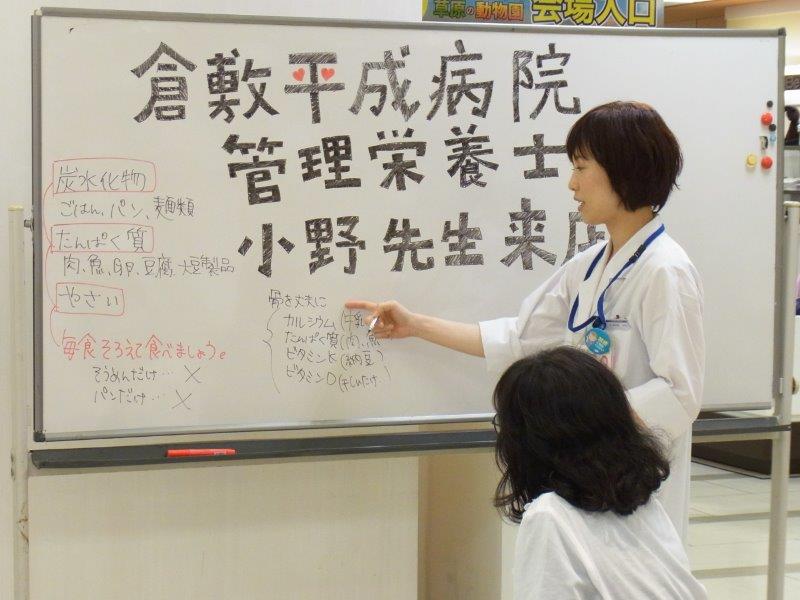 草原の動物園 会場入口
倉敷平成病院
管理栄養士
小野先生来店
炭水化物
ごはん、パン、麺類
たんぱく質
肉、魚、卵、豆腐、大豆製品
やさい
毎食そろえて食べましょう。
そうめんだけ… ×
パンだけ… ×
骨を丈夫に
カルシウム(牛乳
たんぱく質(肉、魚
ビタミンK(納豆)
ビタミンD(干ししいたけ